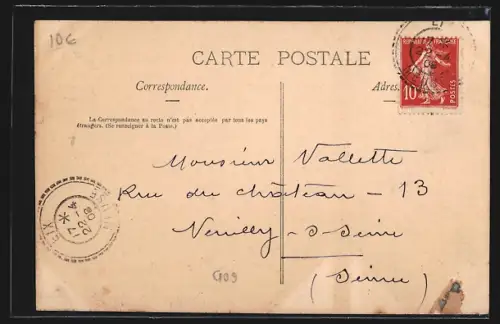 10€
CARTE POSTALE
Correspondance.
Adresse
La Correspondance au recto n'est pas acceptée par tous les pays
étrangers. (Se renseigner à la Poste.)
10
POSTES
Monsieur Vallette
Rue du château - 13
Neuilly-s-Seine
(Seine)
G09
17 -4
22
09
EIX